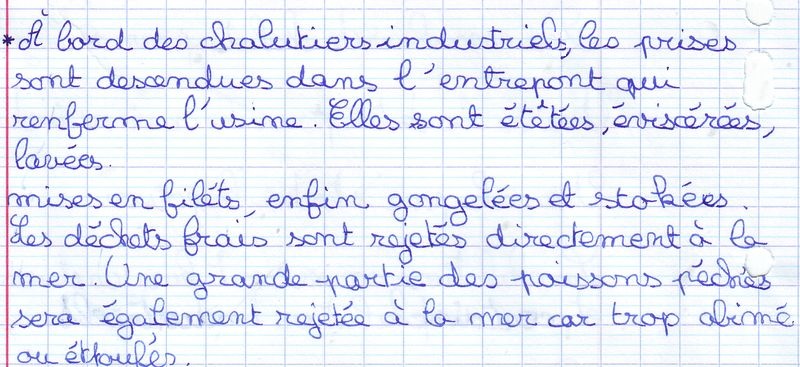 * À bord des chalutiers industriels, les prises
sont descendues dans l'entrepont qui
renferme l'usine. Elles sont étêtées, éviscérées,
lavées.
mises en filéts, enfin gongelées et stokées.
Les déchets frais sont rejetés directement à la
mer. Une grande partie des poissons péchés
sera également rejetée à la mer car trop abimé
ou